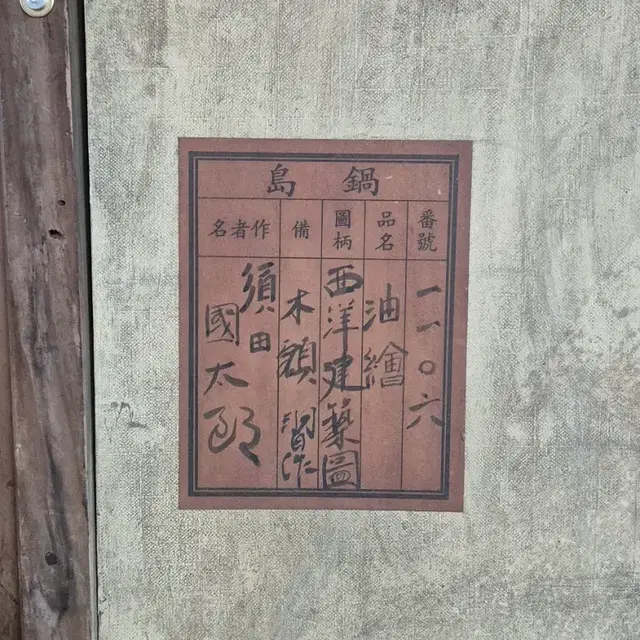 鍋島
番號
一一〇六
品名
油繪
圖柄
西洋建築圖
備
木額
作者名
須田
國太郎